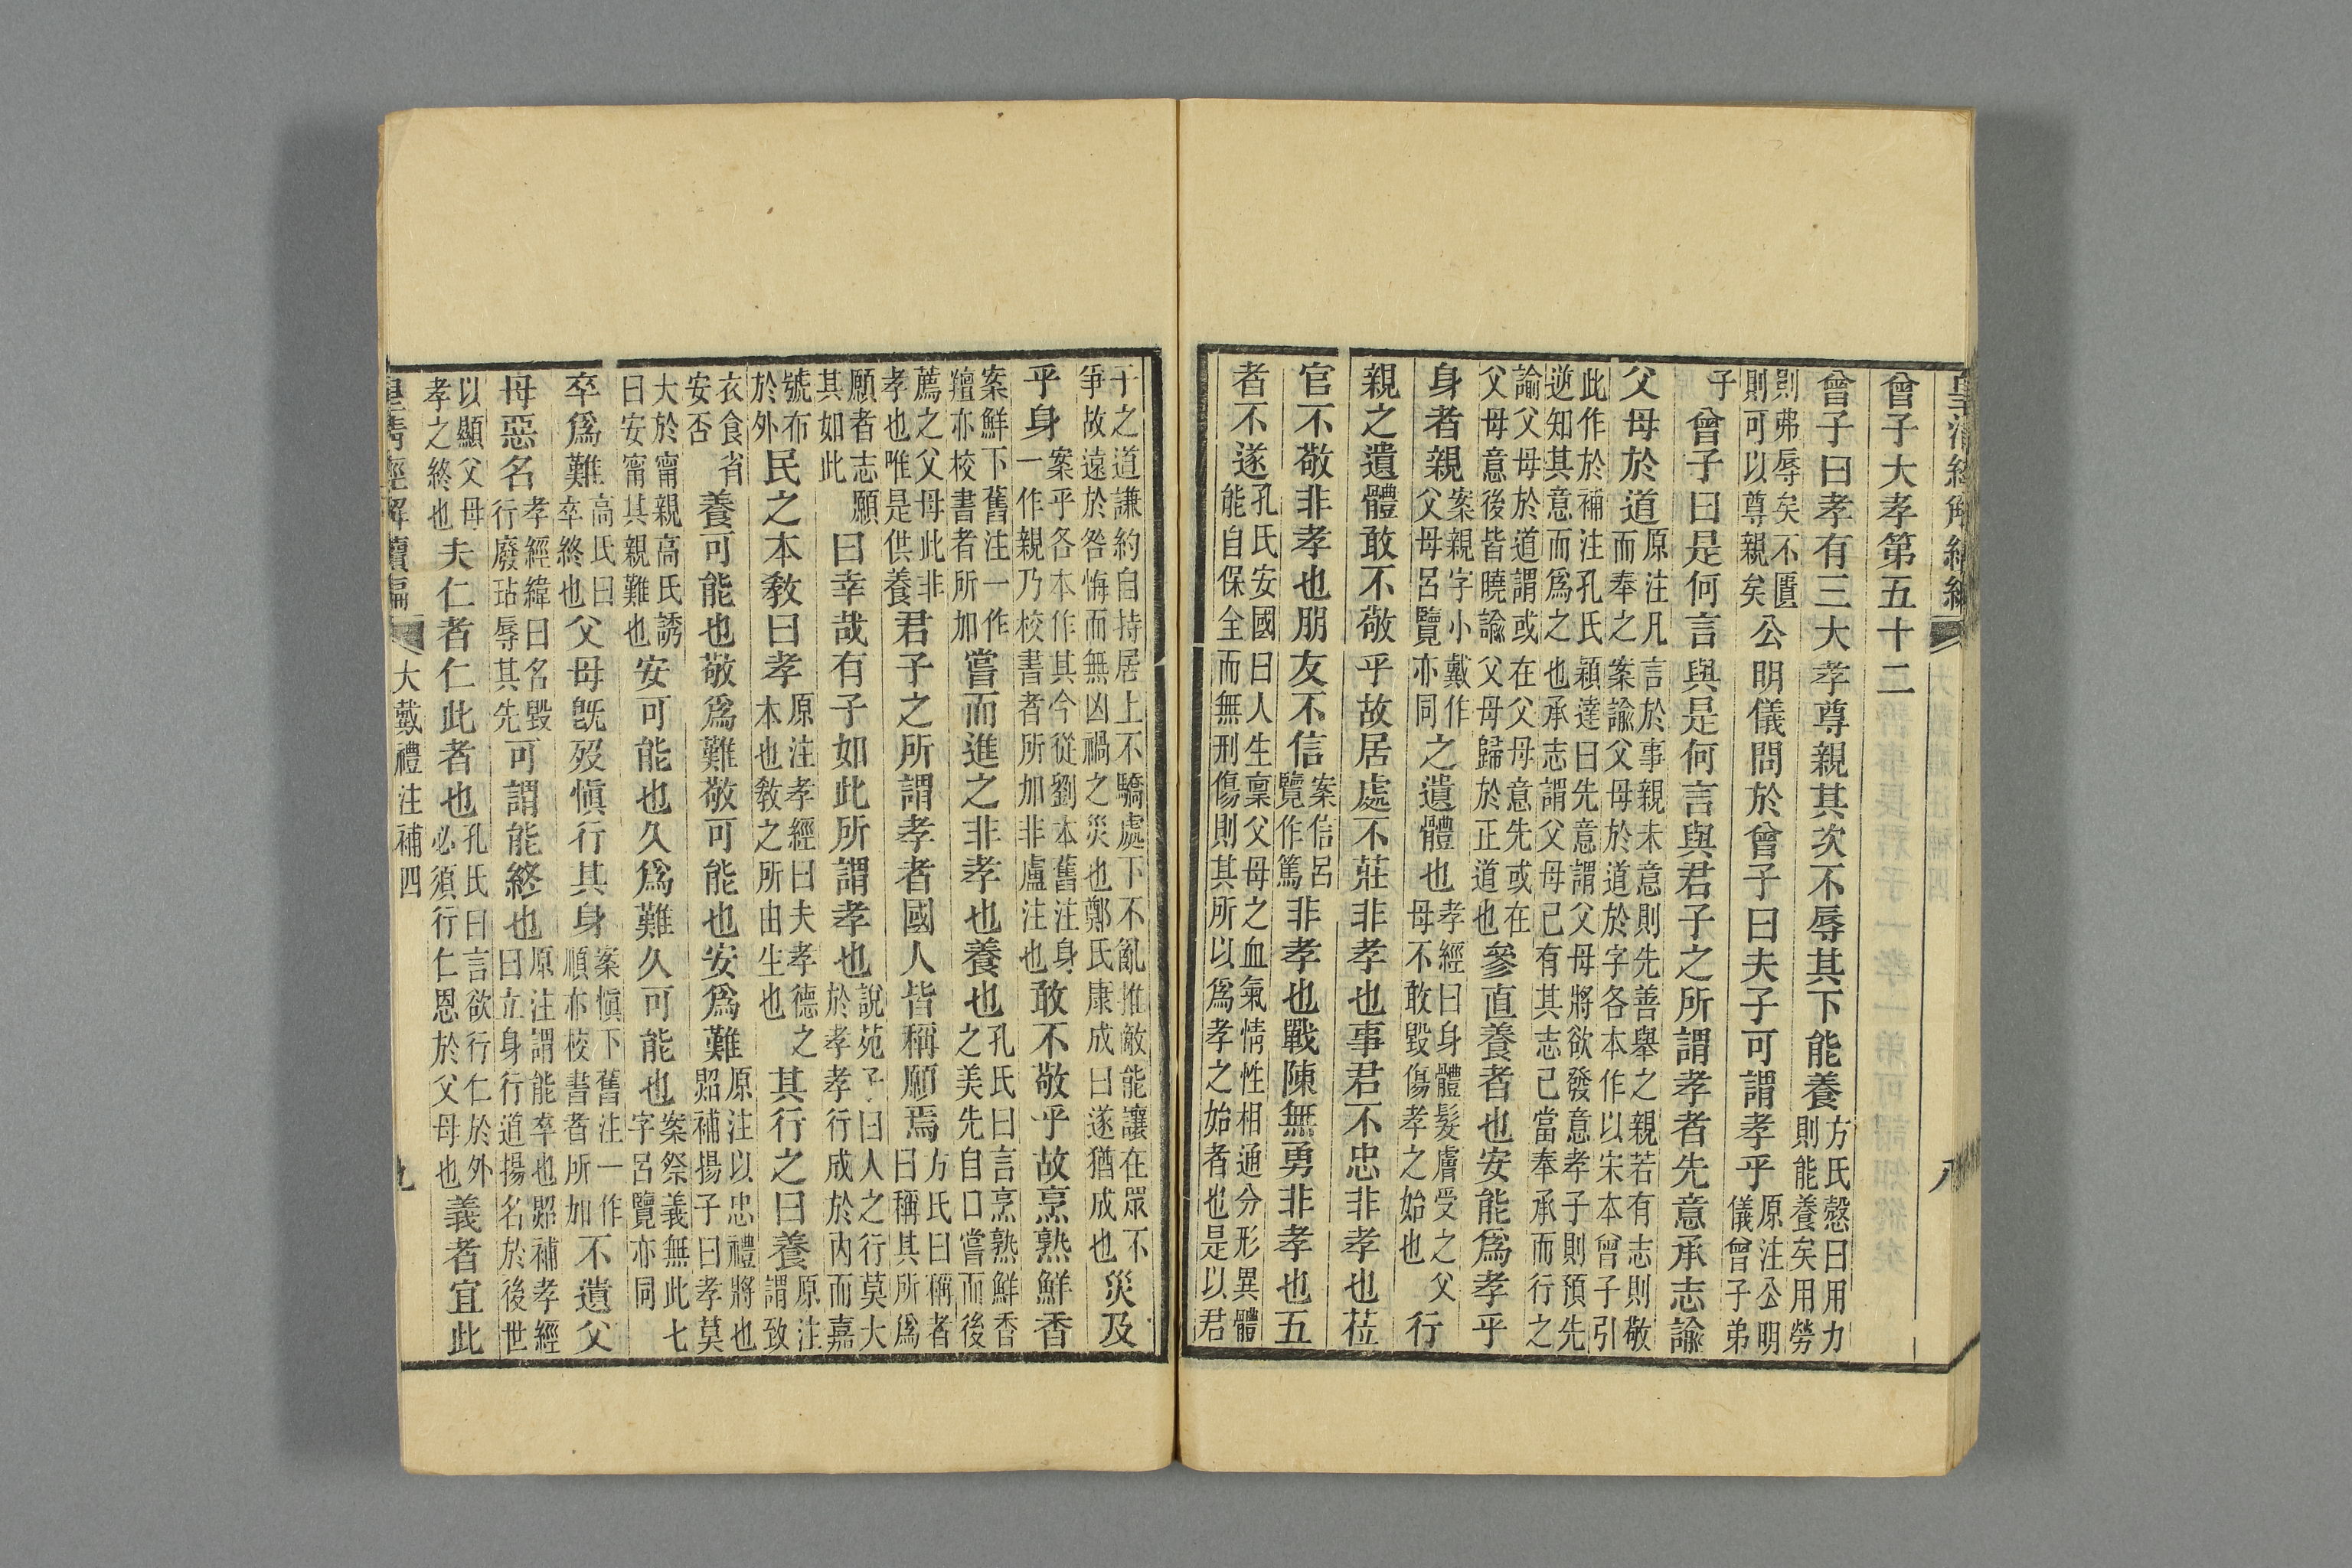 皇清經解續編
八
曾子大孝第五十二
曾子曰孝有三大孝尊親其次不辱其下能養方氏愨曰用力則能養矣用勞
則弗辱矣不匱則可以尊親矣公明儀問於曾子曰夫子可謂孝乎原注公明儀曾子弟
子曾子曰是何言與是何言與君子之所謂孝者先意承志諭
父母於道原注凡言於事親未意則先善舉之親若有志則敬而奉之案諭父母於道於字各本作以宋本曾子引
此作於補注孔氏穎達曰先意謂父母將欲發意孝子則預先逆知其意而爲之也承志謂父母已有其志己當奉承而行之
諭父母於道謂或在父母意先或在父母意後皆曉諭父母歸於正道也參直養者也安能爲孝乎
身者親案親字小戴作父母呂覽亦同之遺體也孝經曰身體髮膚受之父母不敢毀傷孝之始也行
親之遺體敢不敬乎故居處不莊非孝也事君不忠非孝也莅
官不敬非孝也朋友不信案信呂覽作篤非孝也戰陳無勇非孝也五
者不遂孔氏安國曰人生稟父母之血氣情性相通分形異體能自保全而無刑傷則其所以爲孝之始者也是以君
子之道謙約自持居上不驕處下不亂推敵能讓在眾不爭故遠於咎悔而無凶禍之災也鄭氏康成曰遂猶成也災及
乎身案乎各本作其今從劉本舊注身一作親乃校書者所加非盧注也敢不敬乎故烹熟鮮香
案鮮下舊注一作羶亦校書者所加嘗而進之非孝也養也孔氏曰言烹熟鮮香之美先自口嘗而後
薦之父母此非孝也唯是供養君子之所謂孝者國人皆稱願焉方氏曰稱者曰稱其所爲
願者志願其如此曰幸哉有子如此所謂孝也說苑子曰人之行莫大於孝孝行成於內而嘉
號布於外民之本敎曰孝原注孝經曰夫孝德之本也敎之所由生也其行之曰養原注謂致
衣食省安否養可能也敬爲難敬可能也安爲難原注以忠禮將也貺補揚子曰孝莫
大於甯親高氏誘曰安甯其親難也安可能也久爲難久可能也案祭義無此七字呂覽亦同
卒爲難高氏曰卒終也父母旣歿愼行其身案愼下舊注一作順亦校書者所加不遺父
母惡名孝經緯曰名毀行廢玷辱其先可謂能終也原注謂能卒也貺補孝經曰立身行道揚名於後世
以顯父母孝之終也夫仁者仁此者也孔氏曰言欲行仁於外必須行仁恩於父母也義者宜此
皇清經解續編
大戴禮注補四
九